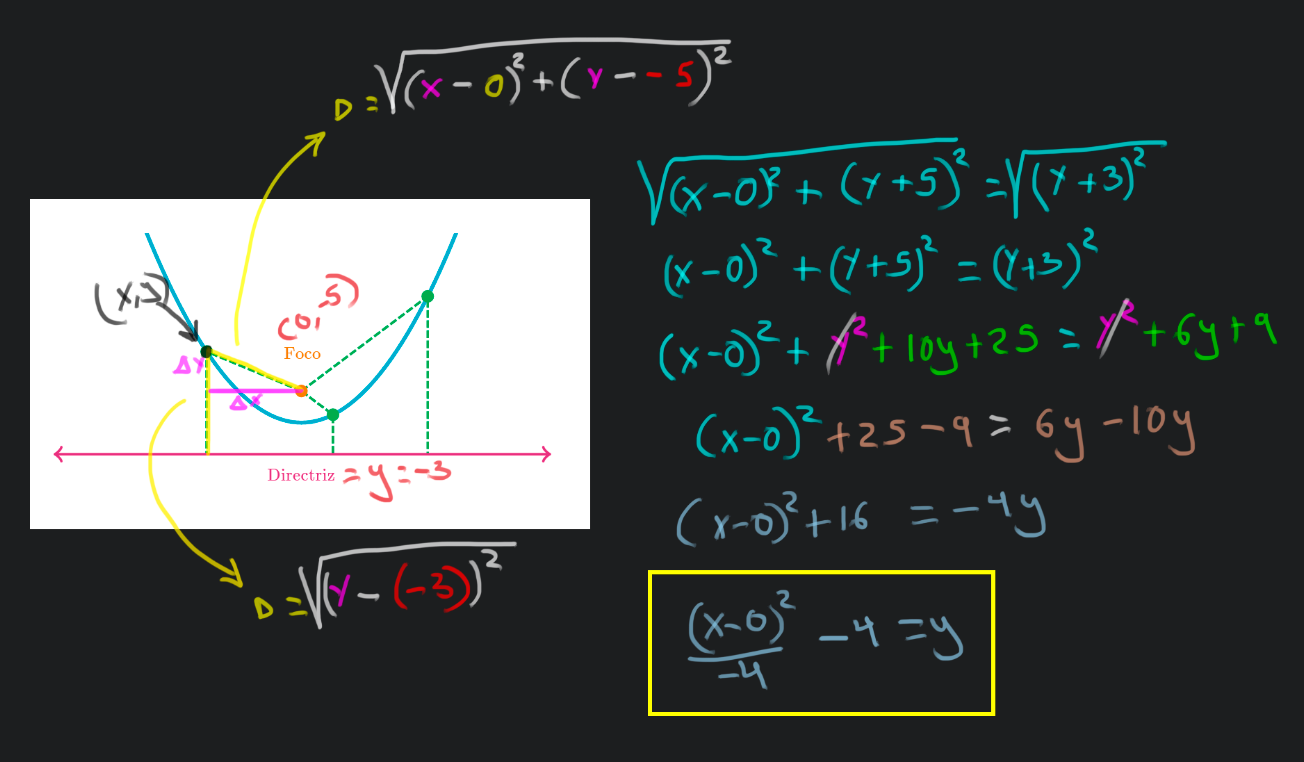 D = √(x - 0)² + (y - - 5)²
(x,y)
(0,-5)
Foco
Δy
Δx
Directriz = y = -3
D = √(y - (-3))²
√(x-0)² + (y+5)² = √(y+3)²
(x-0)² + (y+5)² = (y+3)²
(x-0)² + y² + 10y + 25 = y² + 6y + 9
(x-0)² + 25 - 9 = 6y - 10y
(x-0)² + 16 = -4y
(x-0)²/-4 - 4 = y